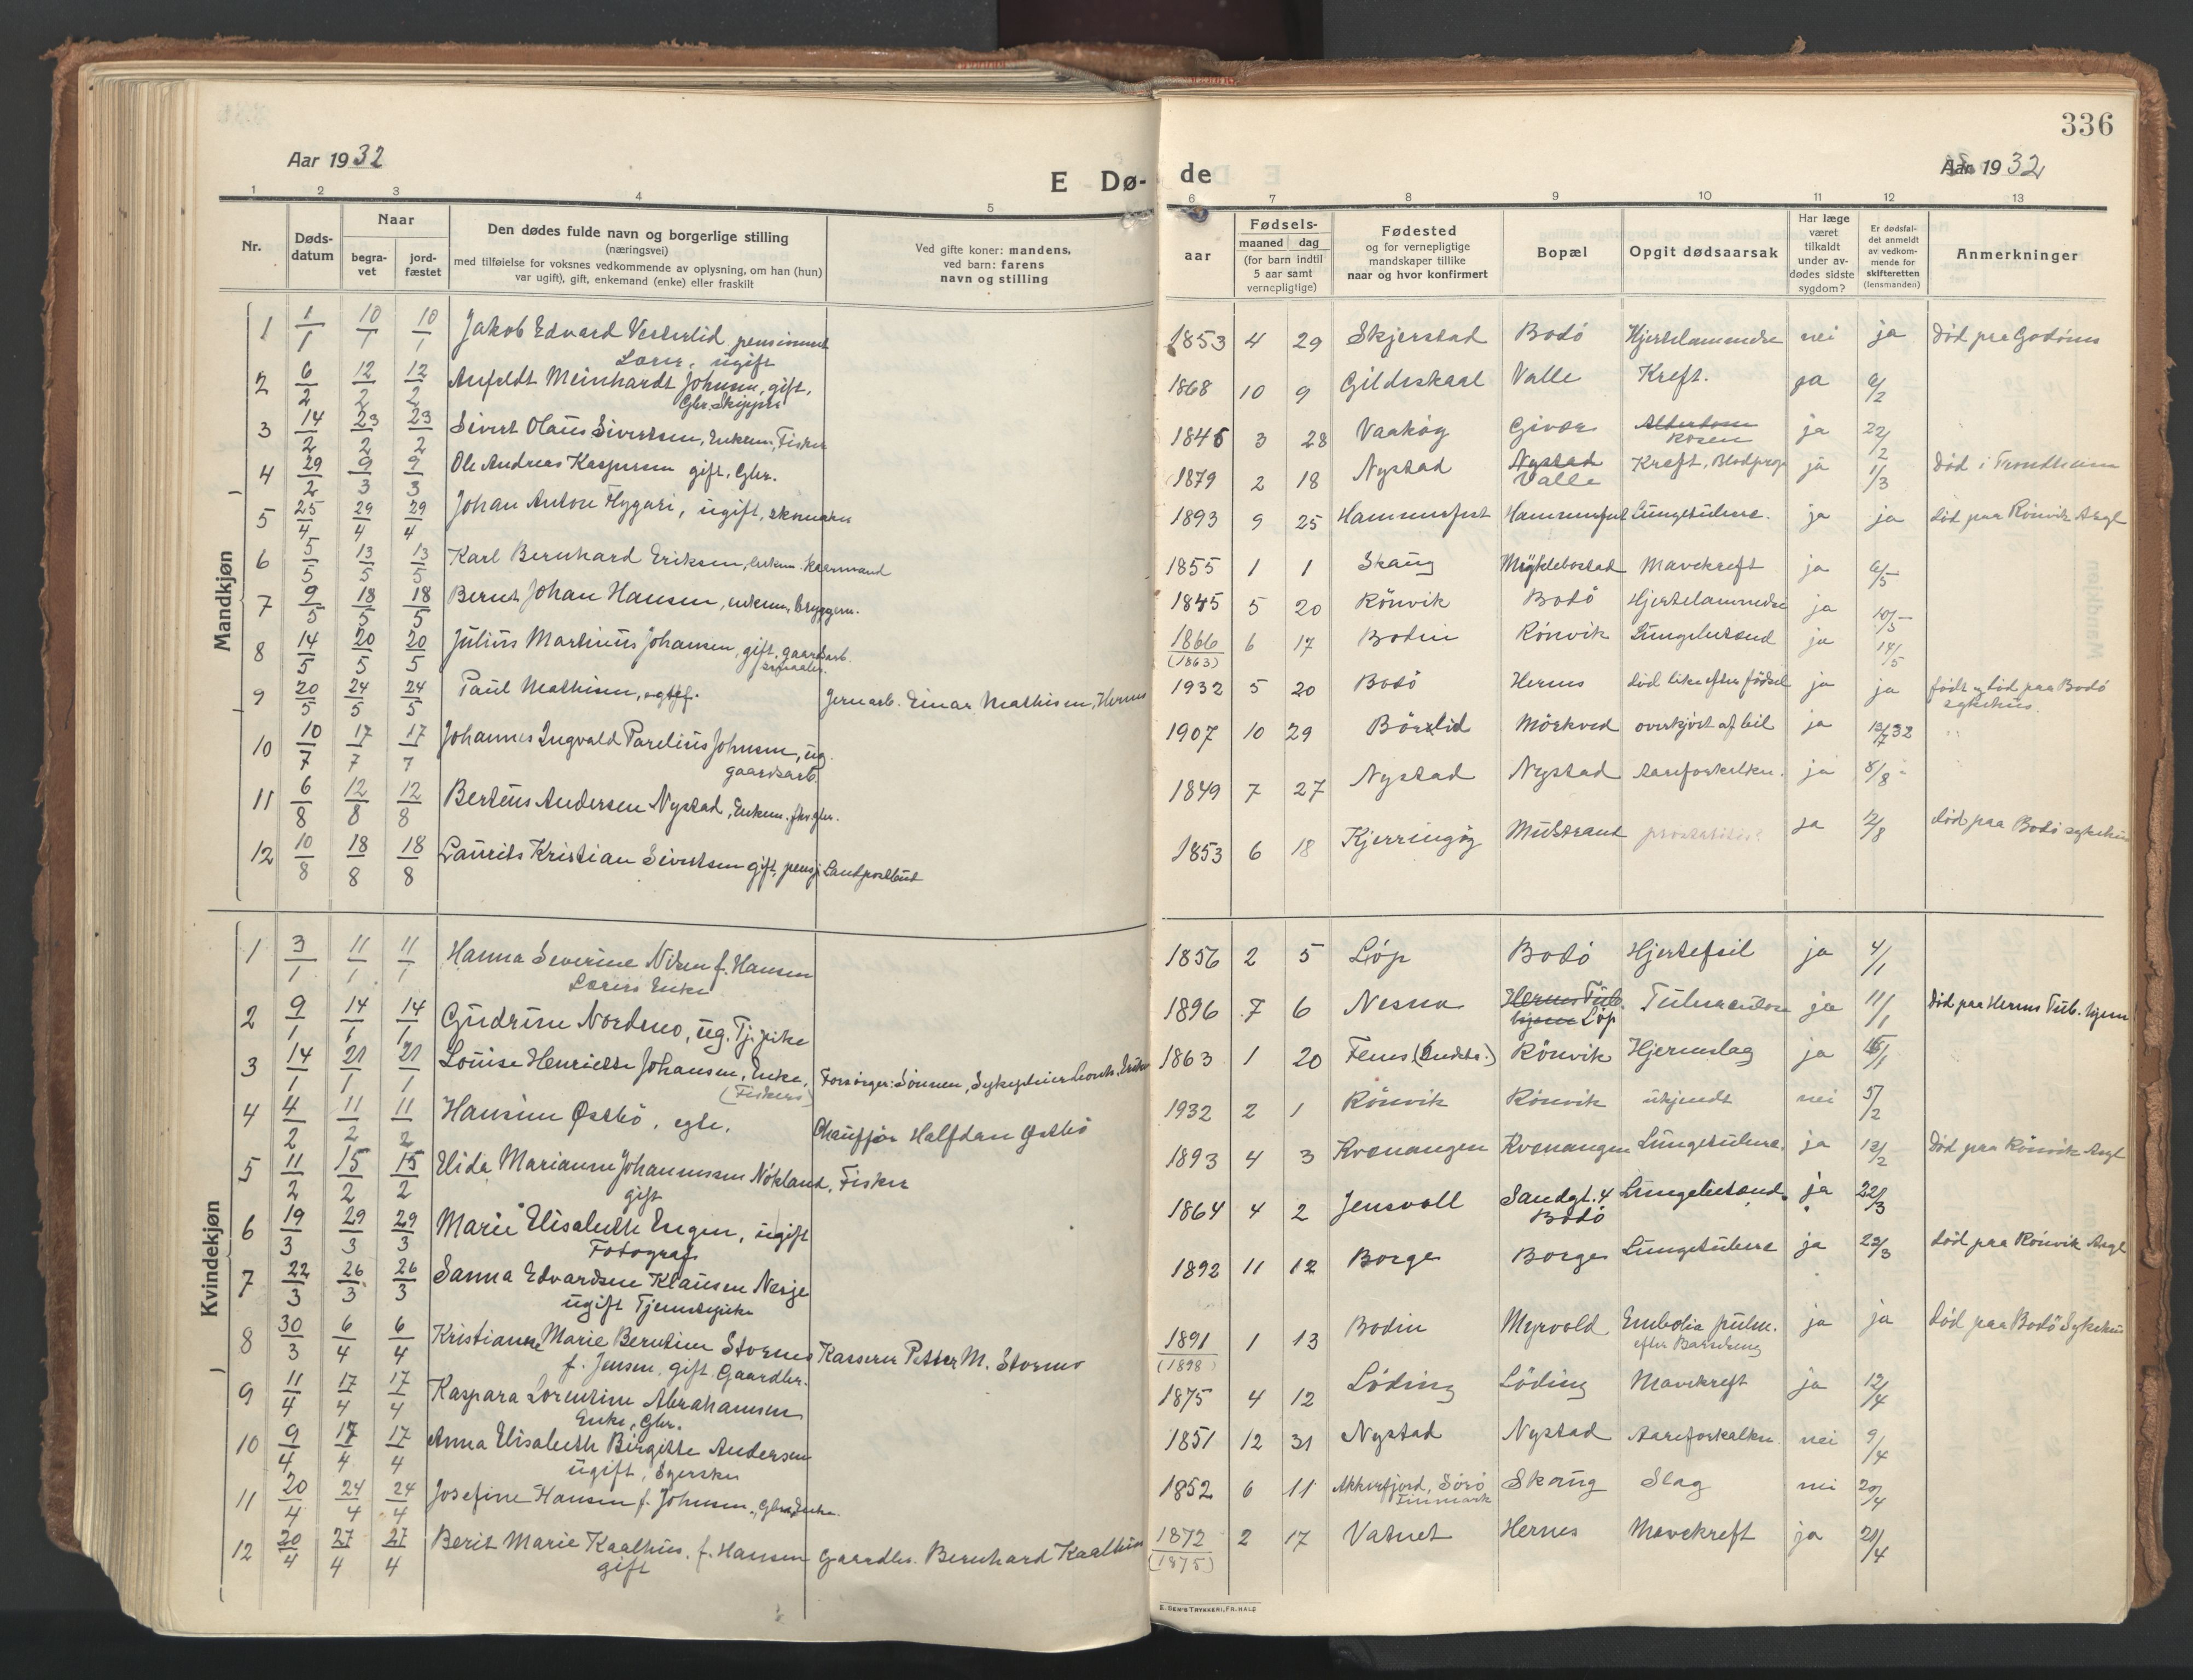 336
Aar 1932
E Dø-de
Aar 1932
1 2 3 4 5 6 7 8 9 10 11 12 13
Nr.
Døds-datum
Naar
begra-vet
jord-fæstet
Den dødes fulde navn og borgerlige stilling
(næringsvei)
med tilføielse for voksnes vedkommende av oplysning, om han (hun)
var ugift), gift, enkemand (enke) eller fraskilt
Ved gifte koner: mandens,
ved barn: farens
navn og stilling
aar
Fødsels-
maaned dag
(for barn indtil
5 aar samt
vernepligtige)
Fødested
og for vernepligtige
mandskaper tillike
naar og hvor konfirmert
Bopæl
Opgit dødsaarsak
Har læge
været
tilkaldt
under av-
dødes sidste
sygdom?
Er dødsfal-
det anmeldt
av vedkom-
mende for
skifteretten
(lensmanden)
Anmerkninger
Mandkjøn
1 1/1 10/1 10/1 Jakob Edvard Vesterlid, pensionert Lærer, ugift 1853 4 29 Skjerstad Bodö Hjertelammelse nei ja Död paa Godönes
2 6/2 12/2 12/2 Anfeldt Meinhardt Johnsen, gift, Gbr. Skipper 1868 10 9 Gildeskaal Valle Kreft. ja 6/2
3 14/2 23/2 23/2 Sivert Olaus Sivertsen, Enkem, Fisker 1846 3 28 Givær ja 22/2
4 29/2 9/3 9/3 Ole Andreas Kaspersen gift, Gbr. 1879 2 18 Nystad Nystad Valle Kræft, Blodprop ja 1/3 Död i Trondheim
5 25/4 29/4 29/4 Johan Anton Flygari, ugift, skomaker 1893 9 25 Hammerfest Hammerfest Lungetuberc. ja ja död paa Rönvik Asyl
6 5/5 13/5 13/5 Karl Bernhard Eriksen, enkem. kaarmand 1855 1 1 Skaug Myklebostad Mavekreft ja 6/5
7 9/5 18/5 18/5 Bernt Johan Hansen, enkem, bryggem. 1845 5 20 Rönvik Bodö Hjertelammelse ja 10/5
8 14/5 20/5 20/5 Julius Martinus Johansen, gift, gaardsarb. 1866 (1863) 6 17 Bodin Rönvik Lungebetænd ja 14/5
9 20/5 24/5 24/5 Paul Mathisen, Jernarb. Einar Mathisen, Hernes 1932 5 20 Bodö Hernes död like efter födsel ja ja födt og död paa Bodö sykehus.
10 10/7 17/7 17/7 Johannes Ingvald Parelius Johnsen, ug. gaardsarb. 1907 10 29 Börelid Mörkved overkjört af bil ja 13/7 32
11 6/8 12/8 12/8 Berteus Andersen Nystad, Enkem. fhv gbr. 1849 7 27 Nystad Nystad Aareforkalkn. ja 8/8
12 10/8 18/8 18/8 Laurits Kristian Sivertsen gift, pensj Landpostbud 1853 6 18 Kjerringøy ja 12/8 död paa Bodö sykehus
Kvindekjøn
1 3/1 11/1 11/1 Hanna Severine Nilsen f. Hansen Lærers Enke 1856 2 5 Löp Bodö Hjertefeil ja 4/1
2 9/1 14/1 14/1 Gudrun Nordmo, ug. Tj.pike 1896 7 6 Nesna Hernes Tub. hjem Löp Tuberculose ja 11/1 Död paa Hernes Tub. hjem
3 14/1 21/1 21/1 Louise Henriette Johansen, Enke, (Fiskers) Forsörger: Sönnen, Sykepleier 1863 1 20 Fenes Rönvik Hjerneslag ja 15/1
4 4/2 11/2 11/2 Hansine Østbö, egte. Chauffør Halfdan Østbö 1932 2 1 Rönvik Rönvik ukjendt nei 5/2
5 11/2 15/2 15/2 Elida Marianne Johannessen Nökland, gift Fisker 1893 4 3 Kvænangen Kvænangen Lungetuberc. ja 12/2 Död paa Rönvik Asyl
6 19/3 29/3 29/3 Marie Elisabeth Engen, ugift Fotograf 1864 4 2 Jensvoll Sandgt. 4 Bodö Lungebetænd. ja 22/3
7 22/3 26/3 26/3 Sanna Edvardsen Klausen Nesje ugift Tjenestepike 1892 11 12 Borge Borge Lungetuberc ja 23/3 död paa Rönvik Asyl
8 30/3 6/4 6/4 Kristianne Marie Berntine Stormo f. Jensen, gift. Gaardbr. Kasserer Petter M. Stormo 1891 (1898) 1 13 Bodin Myrvold Embolia pulm. efter Barseleng ja ja Död paa Bodö Sykehus
9 11/4 17/4 17/4 Kaspara Lorentine Abrahamsen Enke, Gbr. 1875 4 12 Löding Löding Mavekreft ja 12/4
10 9/4 17/4 17/4 Anna Elisabeth Birgitte Andersen ugift, Syerske 1851 12 31 Nystad Nystad Aareforkalkn nei 9/4
11 20/4 24/4 24/4 Josefine Hansen f. Johnsen, Gbr. Enke. 1852 6 11 Akkerfjord, Sörö Finmark Skaug Slag nei 20/4
12 20/4 27/4 27/4 Berit Marie Kaalhus. f. Hansen gift Gaardbr. Bernhard Kaalhus 1872 (1875) 2 17 Vatnet Hernes Mavekreft ja 21/4
E. SEM'S TRYKKERI, FR. HALD